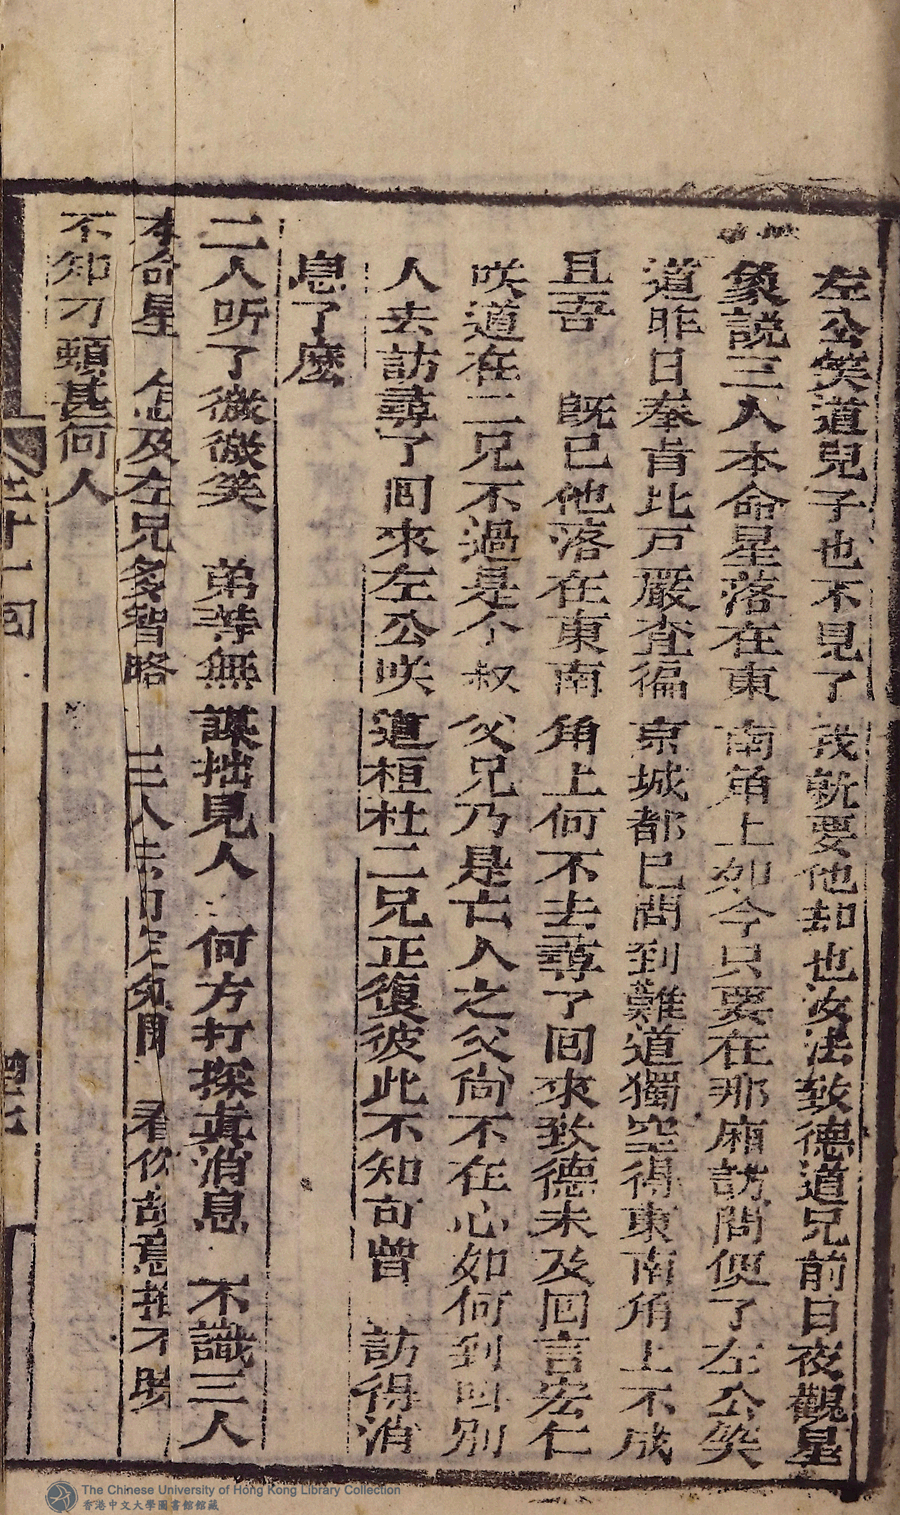 左公笑道兒子也不見了我就要他却也沒法致德道兄前日夜觀星
象説三人本命星落在東南角上如今只要在那廂訪問便了左公笑
道昨日奉旨比戸嚴查徧京城都已問到難道獨空得東南角上不成
且吾 旣已他落在東南角上何不去尋了回來致德未及回言宏仁
咲道在二兄不過是个叔父兄乃是亡人之父尙不在心如何到叫别
人去訪尋了囘來左公咲道桓杜二兄正復彼此不知可曾 訪得消
息了麽
二人听了微微笑 弟等無謀拙見人 何方打探真消息 不識三人
本命星 怎及左兄多智略 三人去向定知聞 看你故意推不
不知刁頓甚何人
三十一回
The Chinese University of Hong Kong Library Collection
香港中文大學圖書館館藏